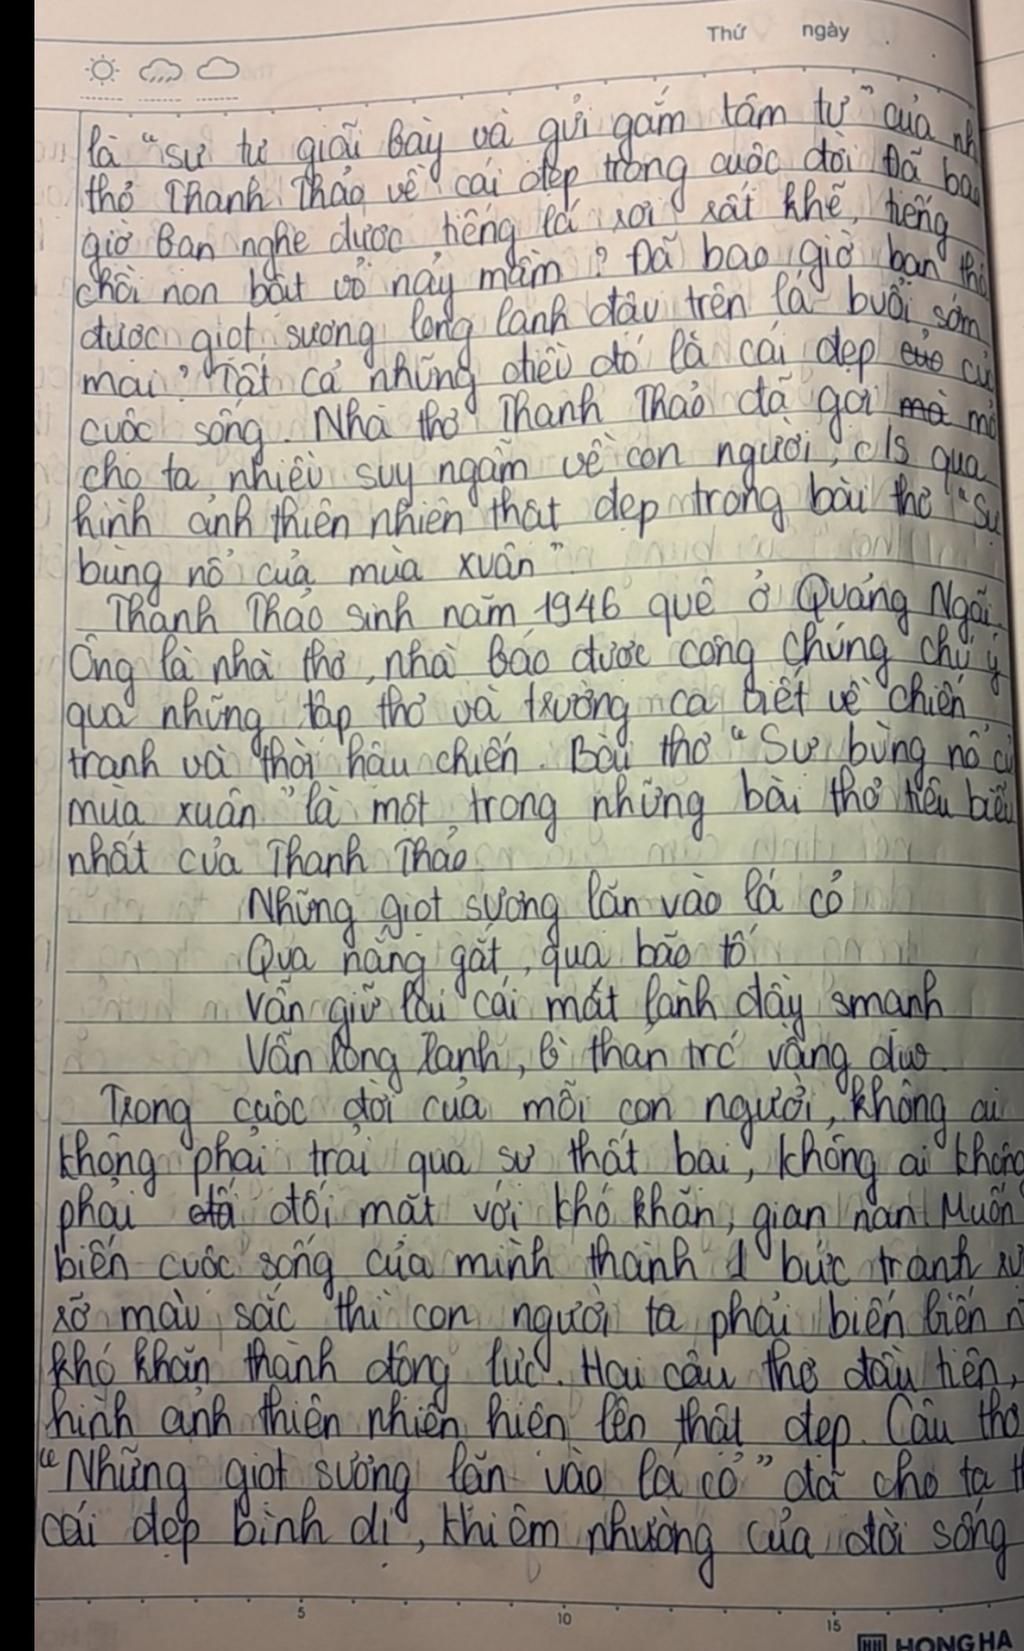 Thứ ngày
là "sự tự giãi bày và gửi gắm tâm tư" của
thơ Thanh Thảo về cái đẹp trong cuộc đời Đã bao
giờ bạn nghe được tiếng lá rơi rất khẽ, tiếng
chồi non bật vỏ nảy mầm? Đã bao giờ bạn
được giọt sương long lanh đậu trên lá buổi sớm
mai? Tất cả những điều đó là cái đẹp
cuộc sống. Nhà thơ Thanh Thảo đã gợi
cho ta nhiều suy ngẫm về con người, c/s qua
hình ảnh thiên nhiên thật đẹp trong bài thơ "Sự
bùng nổ của mùa xuân"
Thanh Thảo sinh năm 1946 quê ở Quảng Ngãi.
Ông là nhà thơ, nhà báo được công chúng chú ý
qua những tập thơ và trường ca biết về chiến
tranh và thời hậu chiến. Bài thơ "Sự bùng nổ
mùa xuân" là một trong những bài thơ tiêu biểu
nhất của Thanh Thảo
Những giọt sương lăn vào lá cỏ
Qua nắng gắt, qua bão tố
Vẫn giữ lại cái mát lành đầy smạnh
Vẫn long lanh, bình thản trc vầng dương
Trong cuộc đời của mỗi con người, không ai
không phải trải qua sự thất bại, không ai không
phải đối mặt với khó khăn, gian nan. Muốn
biến cuộc sống của mình thành 1 bức tranh
rỡ màu sắc thì con người ta phải biến biến
khó khăn thành động lực. Hai câu thơ đầu tiên,
hình ảnh thiên nhiên hiện lên thật đẹp. Câu thơ
"Những giọt sương lăn vào lá cỏ" đã cho ta
cái đẹp bình dị, khiêm nhường của đời sống
5 10 15
HONG HA